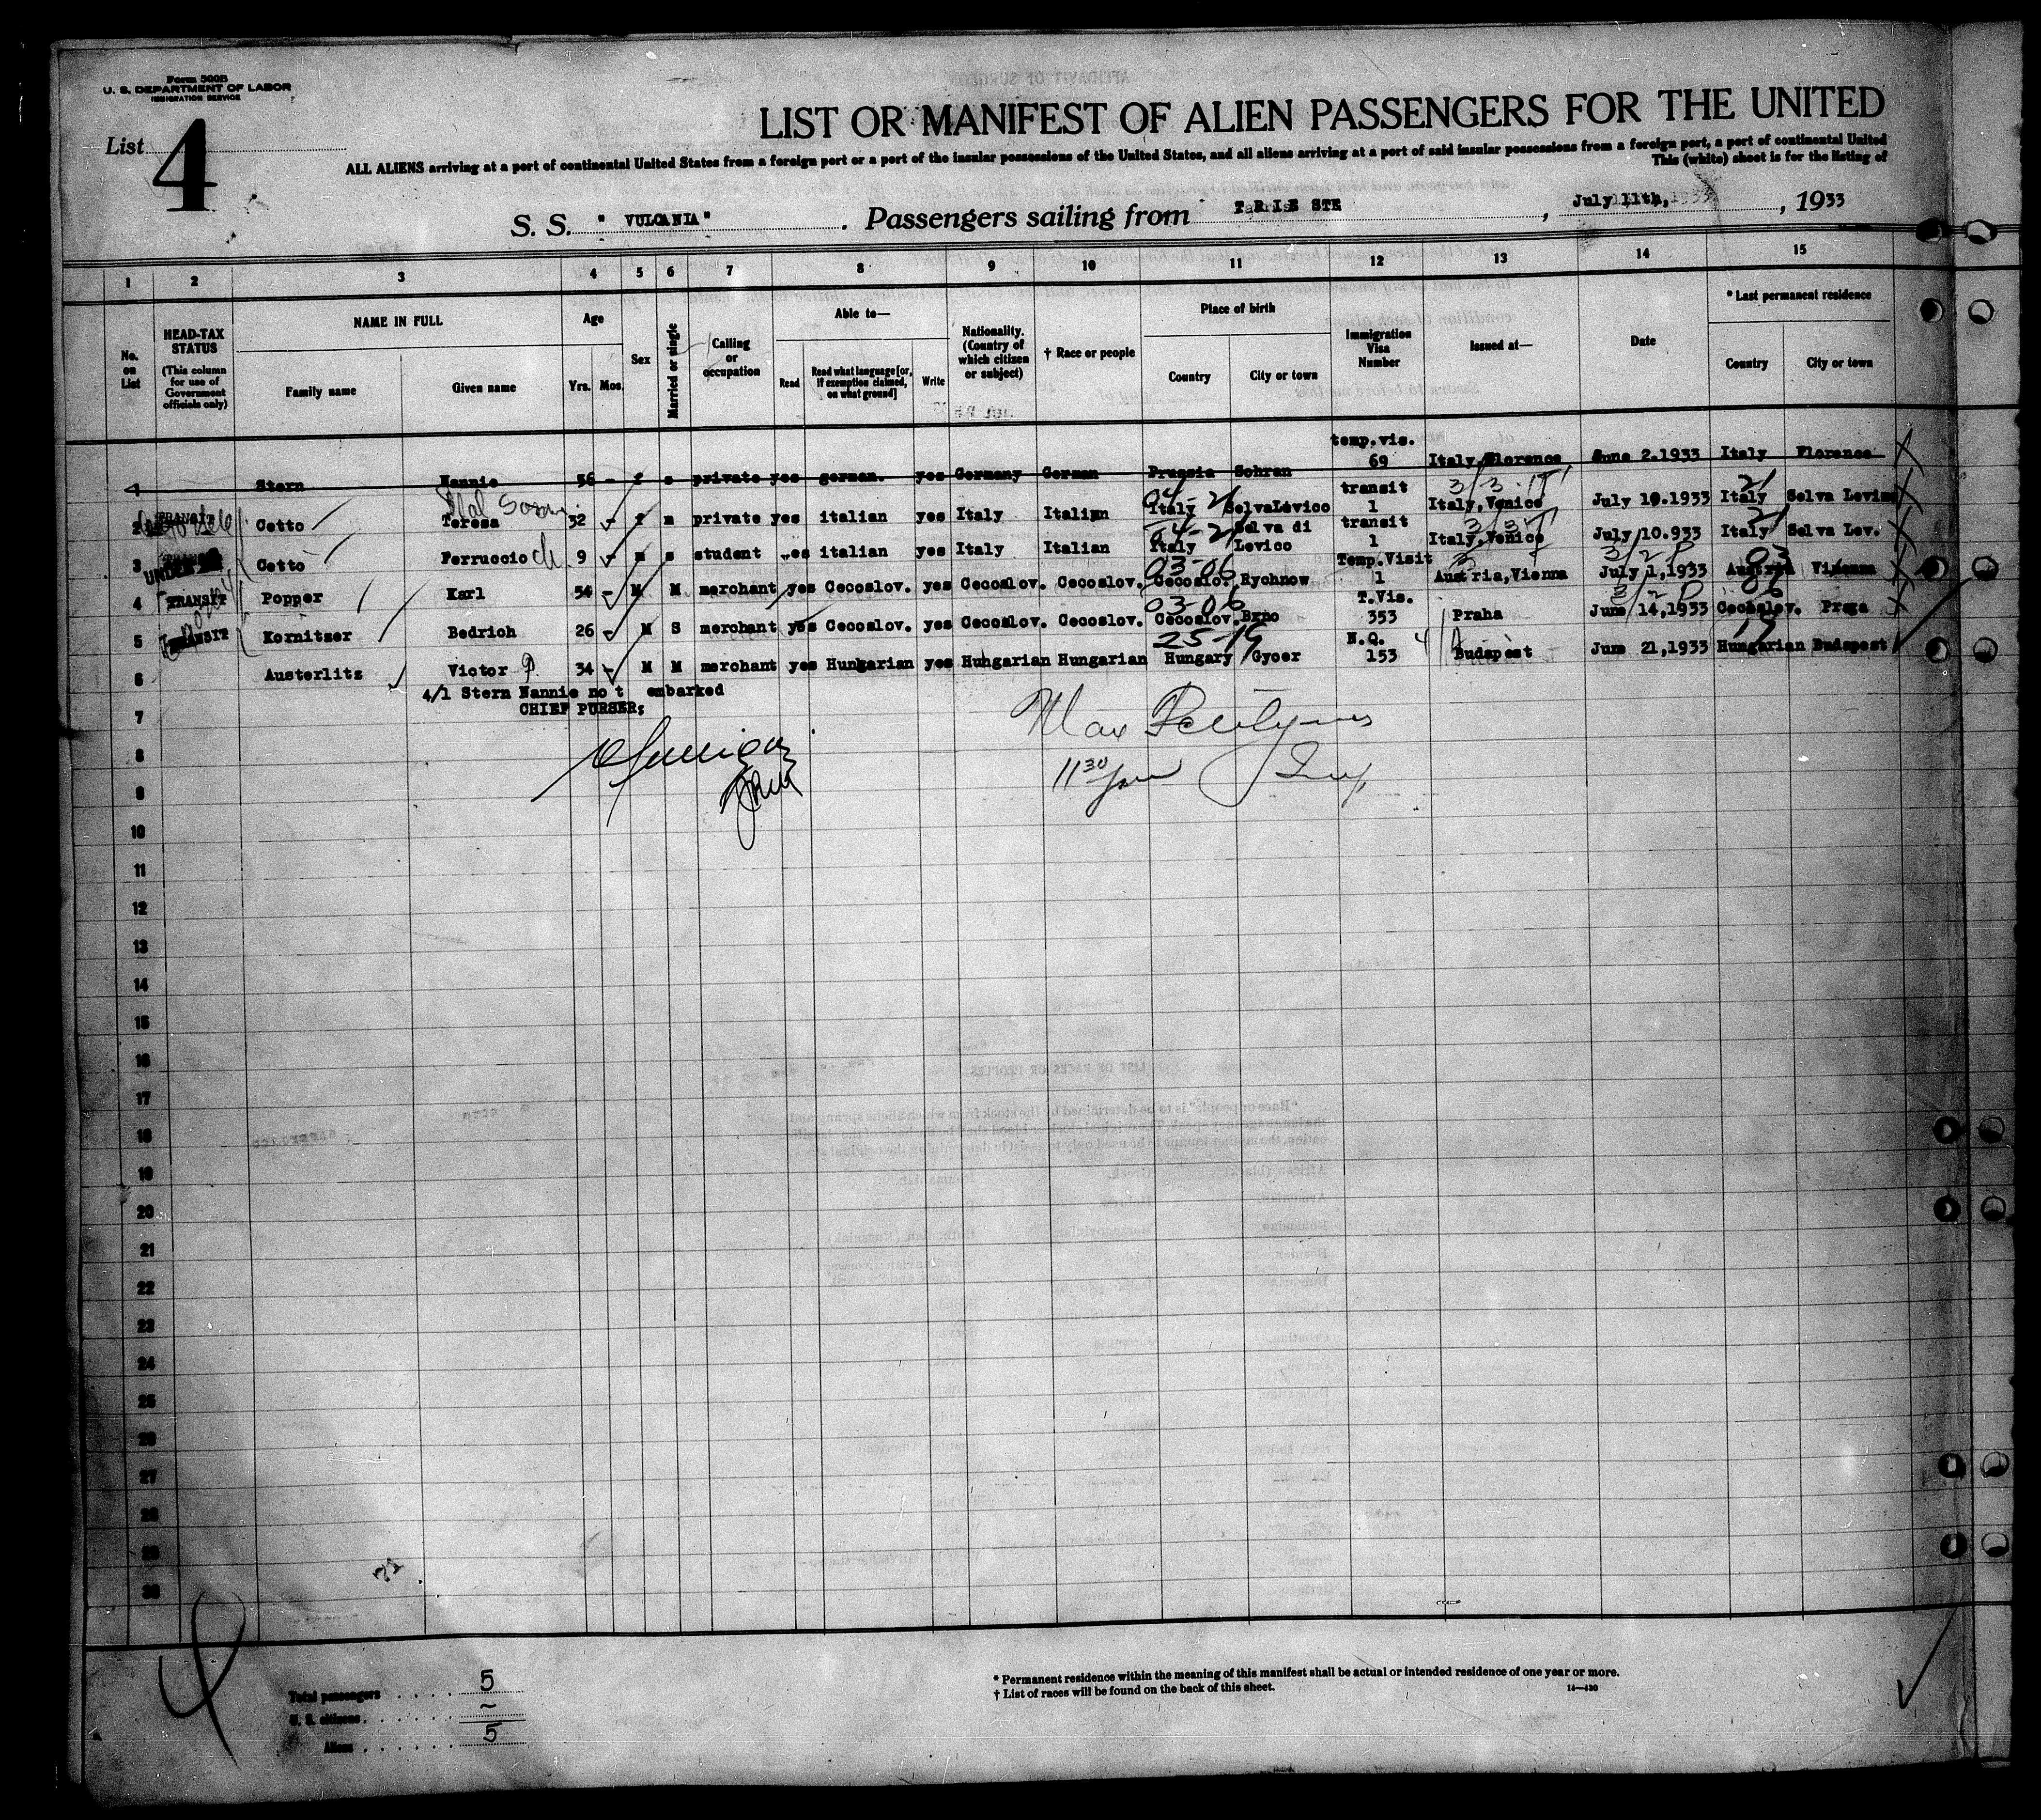 Form 500B
U. S. DEPARTMENT OF LABOR
IMMIGRATION SERVICE
List 4
LIST OR MANIFEST OF ALIEN PASSENGERS FOR THE UNITED
ALL ALIENS arriving at a port of continental United States from a foreign port or a port of the insular possessions of the United States, and all aliens arriving at a port of said insular possessions from a foreign port, a port of continental United
This (white) sheet is for the listing of
S. S. "VULCANIA". Passengers sailing from TRIESTE, July 11th, 1933
1 2 3 4 5 6 7 8 9 10 11 12 13 14 15
No. on List
HEAD-TAX STATUS
(This column for use of Government officials only)
NAME IN FULL
Family name Given name
Age
Yrs. Mos.
Sex
Married or single
Calling or occupation
Able to—
Read Read what language [or, if exemption claimed, on what ground] Write
Nationality. (Country of which citizen or subject)
† Race or people
Place of birth
Country City or town
Immigration Visa Number
Issued at—
Date
* Last permanent residence
Country City or town
1 Stern Nannie 56 - f s private yes german. yes Germany German Prussia Sohran temp.vis. 69 Italy, Florence June 2.1933 Italy Florence
2 Cetto Teresa 32 - f m private yes italian yes Italy Italian 04-21 Italy SelvaLevico transit 1 Italy, Venice July 10.1933 21 Italy Selva Levico
3 Cetto Ferruccio ch 9 - m s student yes italian yes Italy Italian 04-21 Italy Selva di Levico transit 1 Italy, Venice July 10.933 21 Italy Selva Lev.
4 TRANSIT Popper Karl 54 - M M merchant yes Cecoslov. yes Cecoslov. Cecoslov. 03-06 Cecoslo. Rychnow Temp.Visit 1 Austria,Vienna July 1,1933 03 Austria Vienna
5 TRANSIT Kornitzer Bedrich 26 - M S merchant yes Cecoslov. yes Cecoslov. Cecoslov. 03-06 Cecoslov. Brno T.Vis. 353 Praha June 14,1933 06 Cecoslov. Praga
6 Austerlitz Victor 34 - M M merchant yes Hungarian yes Hungarian Hungarian 25-19 Hungary Gyoer N.Q. 153 Budapest June 21,1933 19 Hungarian Budapest
4/1 Stern Nannie not embarked
CHIEF PURSER:
Max
11 30
7
8
9
10
11
12
13
14
15
16
17
18
19
20
21
22
23
24
25
26
27
28
29
30
Total passengers 5
U. S. citizens ~
Aliens 5
* Permanent residence within the meaning of this manifest shall be actual or intended residence of one year or more.
† List of races will be found on the back of this sheet.
14—430